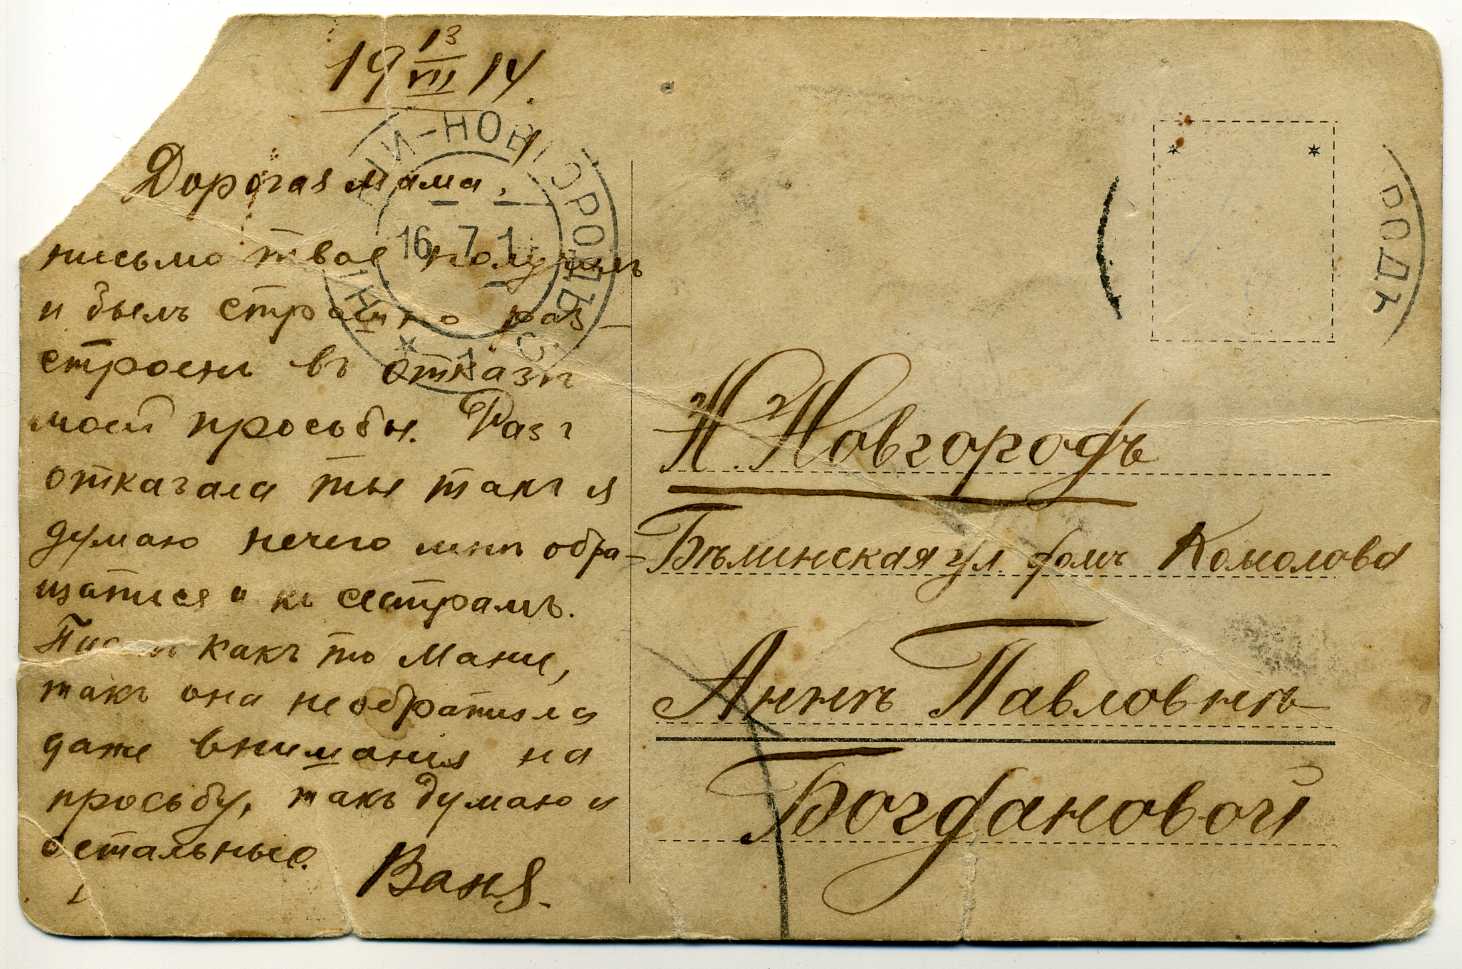 19 13/VII 14.
Дорогая мама,
письмо твое получилъ
и былъ страшно раз-
строенъ въ отказѣ
моей просьбы. Разъ
отказала ты такъ я
думаю нечего мнѣ обра-
щаться и къ сестрамъ.
какъ то Мани,
такъ она не обратила
даже внимания на
просьбу, такъ думаю и
остальные.
Ваня.
НИЖНИ-НОВГОРОДЪ
16.7.1
РОДЪ
Н. Новгородъ
ул. домъ
Аннѣ Павловнѣ
Богдановой